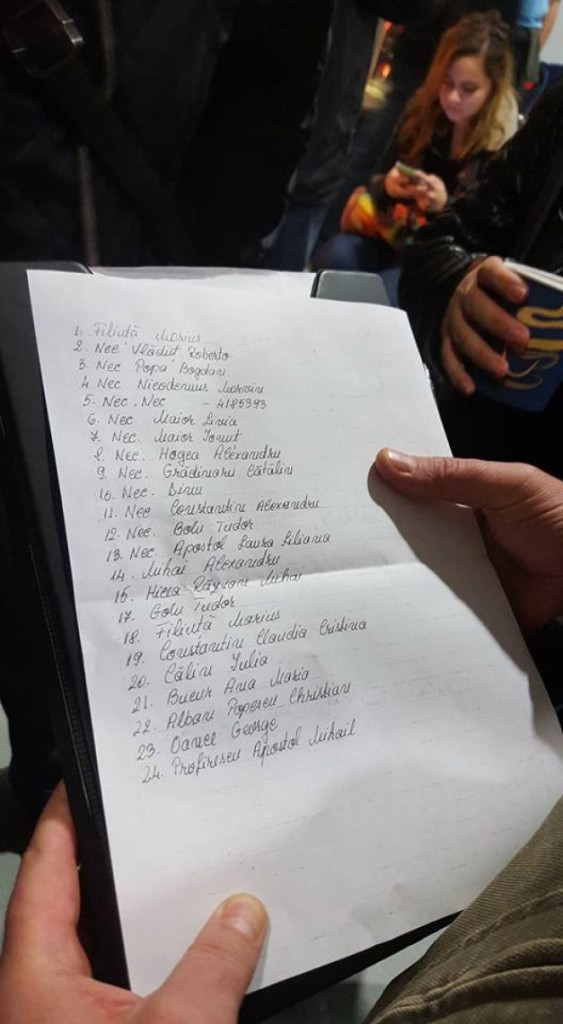 1. Filiută Marius
2. Nec Vlăduț Roberto
3. Nec Popa Bogdan
4. Nec Nicodemus Marovin
5. Nec. Nec - 4185393
6. Nec. Maior Livia
7. Nec. Maior Ionuț
8. Nec. Hogea Alexandru
9. Nec. Grădinaru Cătălin
10. Nec. Dinu
11. Nec Constantin Alexandru
12. Nec. Golu Tudor
13. Nec. Apostol Laura Liliana
14. Mihai Alexandru
15. Răzvan Mihai
17. Golu Tudor
18. Filiută Marius
19. Constantin Claudia Cristina
20. Călin Iulia
21. Bucur Ana Maria
22. Alban Popescu Christian
23. Daniel George
24. Apostol Mihail